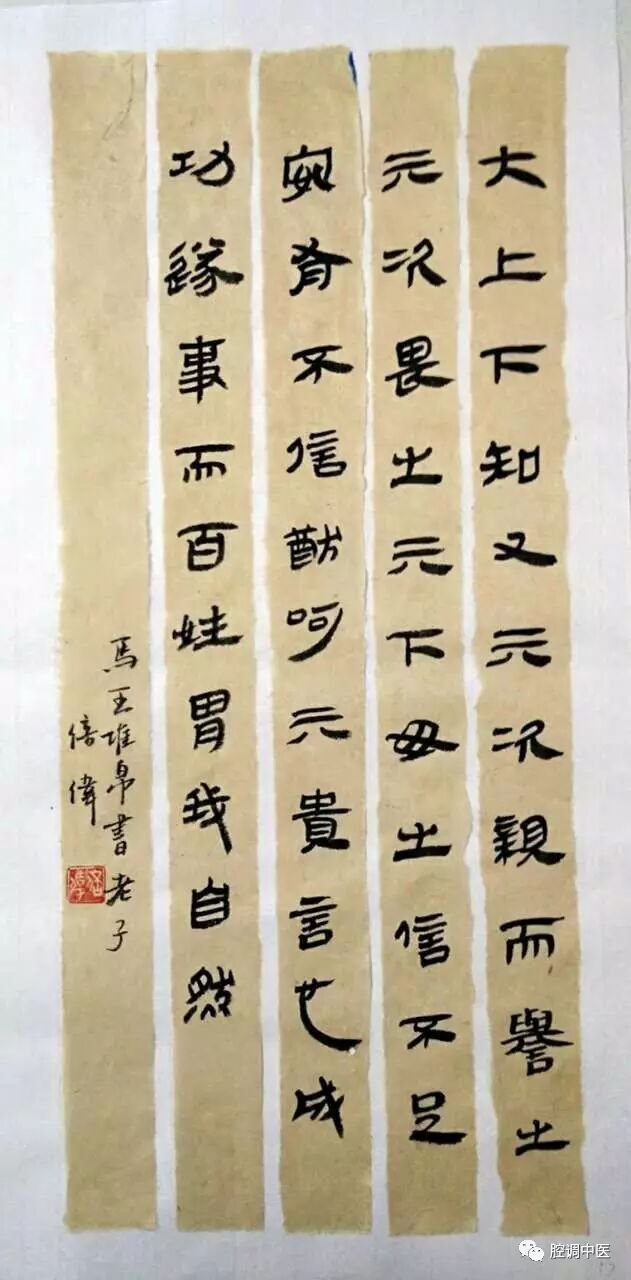 大上下知又亓次親而譽之
亓次畏之亓下母之信不足
安有不信猷呵亓貴言也成
功遂事而百姓胃我自然
馬王堆帛書老子
倍偉
腔调中医